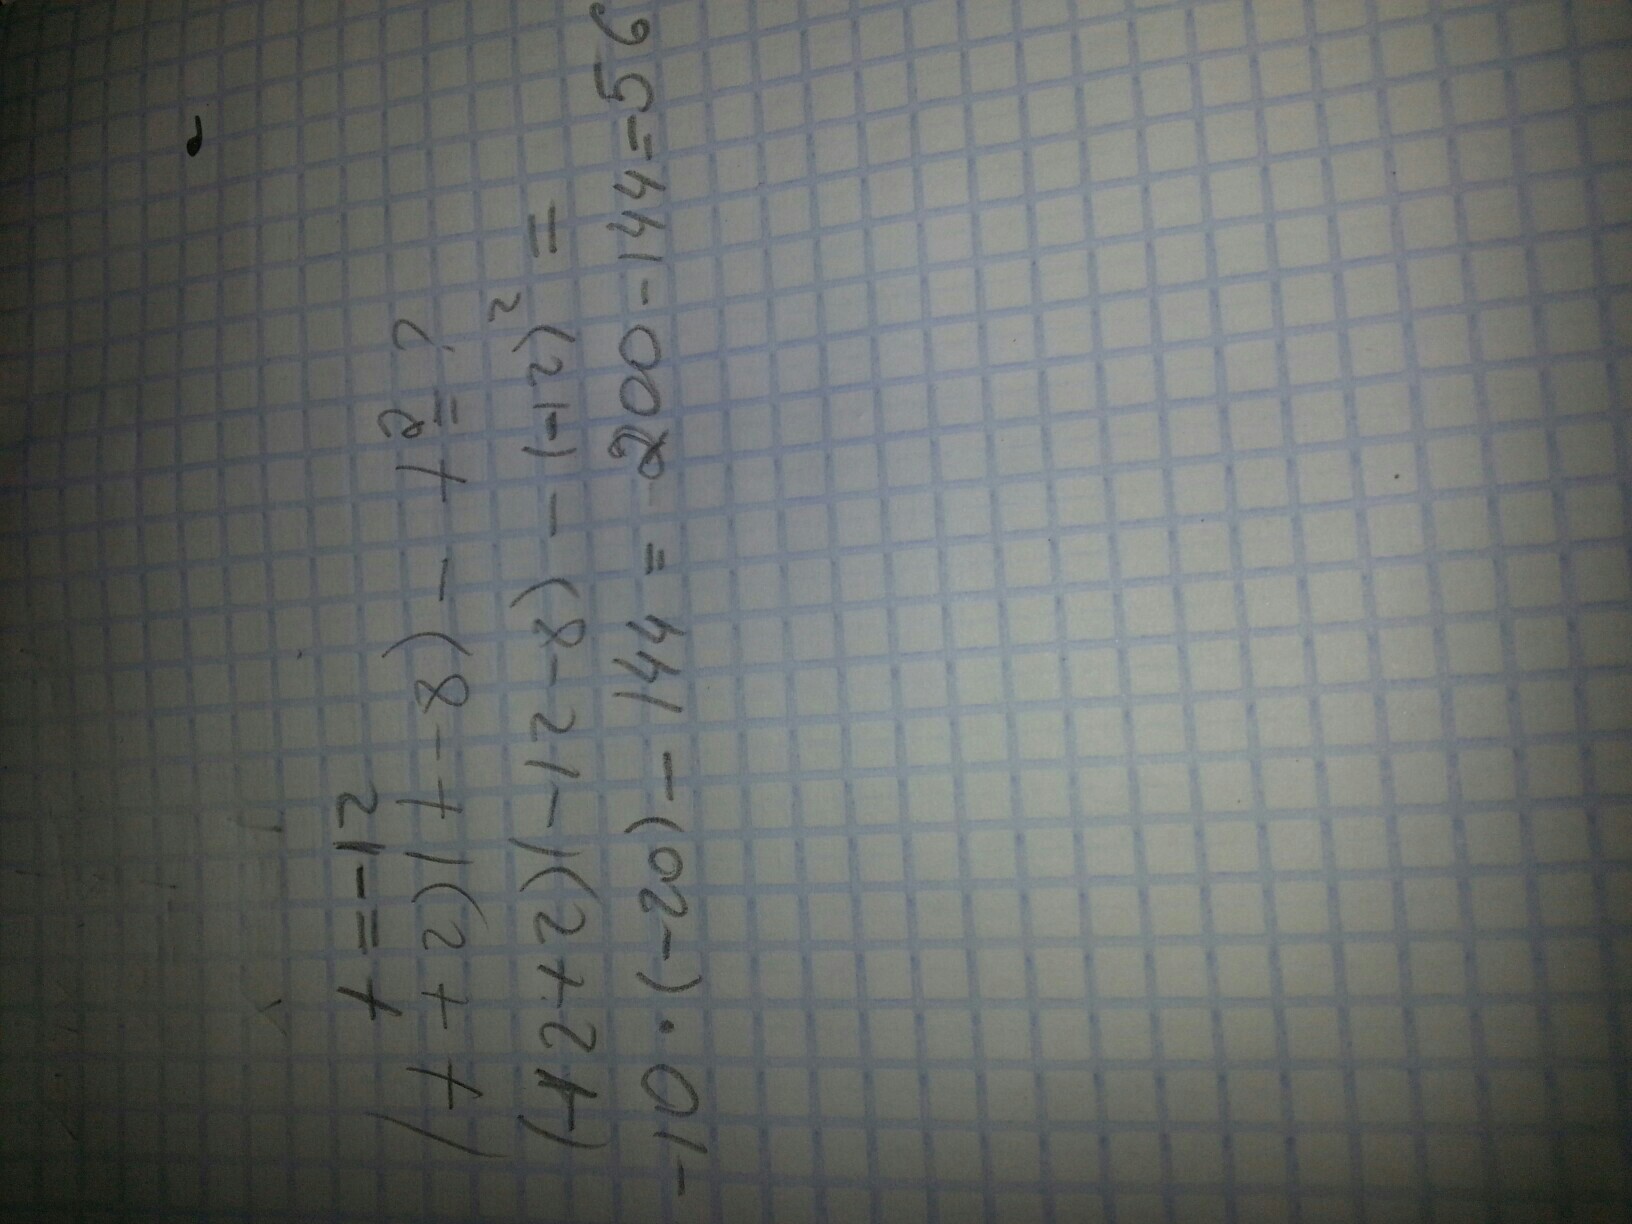 t = -12
(t + 2)(t - 8) - t² = ?
(-12+2)(-12-8) - (-12)² =
-10 · (-20) - 144 = 200 - 144 = 56